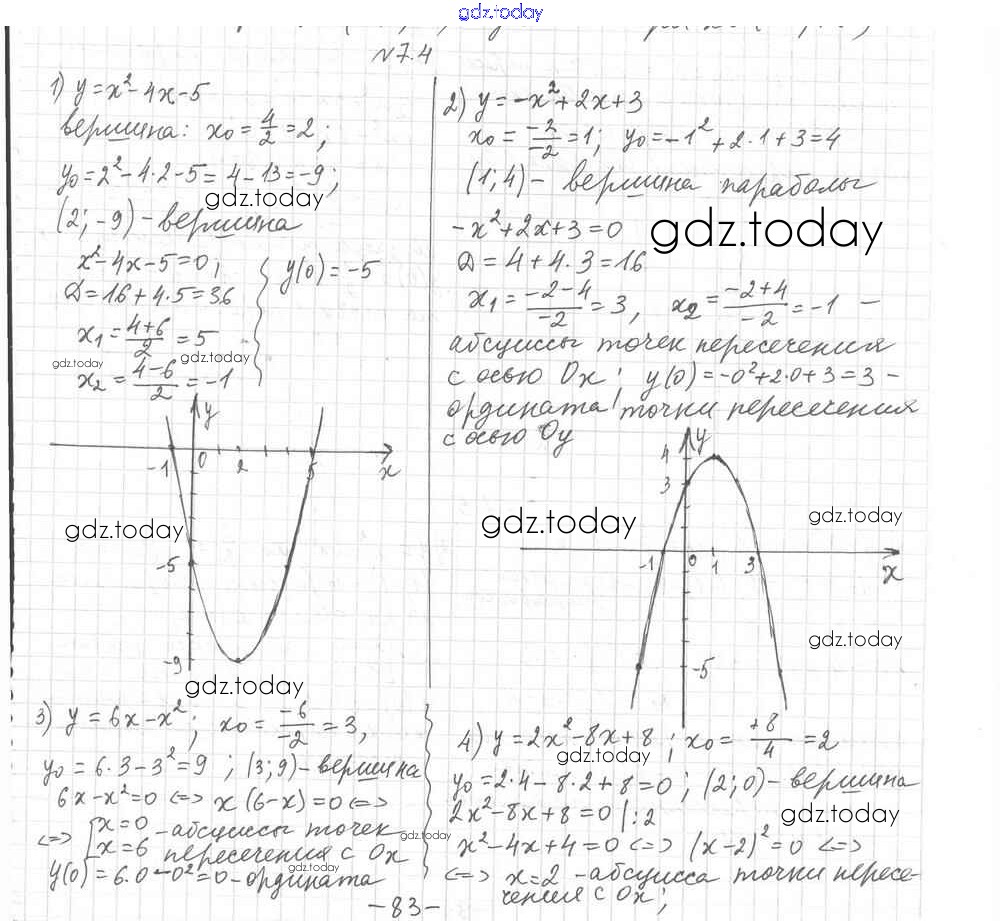 gdz.today
№7.4
1) y=x²-4x-5
вершина: x₀=4/2=2;
y₀=2²-4·2-5=4-13=-9;
gdz.today
(2;-9)-вершина
x²-4x-5=0;
D=16+4·5=36
x₁=(4+6)/2=5
gdz.today gdz.today
x₂=(4-6)/2=-1
y(0)=-5
y
-1 0 2 5 x
gdz.today
-5
-9
gdz.today
2) y=-x²+2x+3
x₀=-2/-2=1; y₀=-1²+2·1+3=4
(1;4)- вершина параболы
-x²+2x+3=0
gdz.today
D=4+4·3=16
x₁=(-2-4)/-2=3, x₂=(-2+4)/-2=-1 -
абсциссы точек пересечения
с осью Ox; y(0)=-0²+2·0+3=3 -
ордината точки пересечения
с осью Oy
y
4
3
gdz.today gdz.today
-1 0 1 3 x
gdz.today
-5
3) y=6x-x²; x₀=-6/-2=3,
y₀=6·3-3²=9; (3;9)-вершина
6x-x²=0 <=> x(6-x)=0 <=>
<=> [x=0 -абсциссы точек
x=6 пересечения с Ox
gdz.today
y(0)=6·0-0²=0-ордината
4) y=2x²-8x+8; x₀=+8/4=2
gdz.today
y₀=2·4-8·2+8=0; (2;0)-вершина
2x²-8x+8=0 |:2
gdz.today
x²-4x+4=0 <=> (x-2)²=0 <=>
<=> x=2 -абсцисса точки пересе-
чения с Ox;
gdz.today
-83-